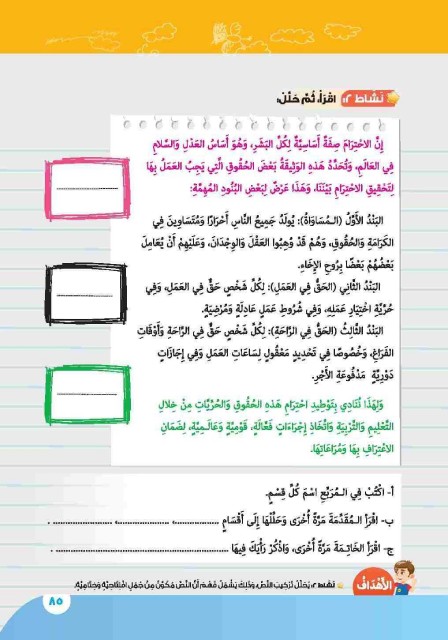 نَشاط ٢: اقْرَأْ، ثُمَّ حَلِّلْ:
إِنَّ الاحْتِرَامَ صِفَةٌ أَسَاسِيَّةٌ لِكُلِّ الْبَشَرِ، وَهُوَ أَسَاسُ الْعَدْلِ وَالسَّلَامِ
فِي الْعَالَمِ، وَتُحَدِّدُ هَذِهِ الْوَثِيقَةُ بَعْضَ الْحُقُوقِ الَّتِي يَجِبُ الْعَمَلُ بِهَا
لِتَحْقِيقِ الاحْتِرَامِ بَيْنَنَا، وَهَذَا عَرْضٌ لِبَعْضِ الْبُنُودِ الْمُهِمَّةِ:
الْبَنْدُ الأَوَّلُ (الْـمُسَاوَاةُ): يُولَدُ جَمِيعُ النَّاسِ أَحْرَارًا وَمُتَسَاوِينَ فِي
الْكَرَامَةِ وَالْحُقُوقِ، وَهُمْ قَدْ وُهِبُوا الْعَقْلَ وَالْوِجْدَانَ، وَعَلَيْهِمْ أَنْ يُعَامِلَ
بَعْضُهُمْ بَعْضًا بِرُوحِ الإِخَاءِ.
الْبَنْدُ الثَّانِي (الْحَقُّ فِي الْعَمَلِ): لِكُلِّ شَخْصٍ حَقٌّ فِي الْعَمَلِ، وَفِي
حُرِّيَّةِ اخْتِيَارِ عَمَلِهِ، وَفِي شُرُوطِ عَمَلٍ عَادِلَةٍ وَمُرْضِيَةٍ.
الْبَنْدُ الثَّالِثُ (الْحَقُّ فِي الرَّاحَةِ): لِكُلِّ شَخْصٍ حَقٌّ فِي الرَّاحَةِ وَأَوْقَاتِ
الْفَرَاغِ، وَخُصُوصًا فِي تَحْدِيدٍ مَعْقُولٍ لِسَاعَاتِ الْعَمَلِ وَفِي إِجَازَاتٍ
دَوْرِيَّةٍ مَدْفُوعَةِ الأَجْرِ.
وَلِهَذَا نُنَادِي بِتَوْطِيدِ احْتِرَامِ هَذِهِ الْحُقُوقِ وَالْحُرِّيَّاتِ مِنْ خِلَالِ
التَّعْلِيمِ وَالتَّرْبِيَةِ وَاتِّخَاذِ إِجْرَاءَاتٍ فَعَّالَةٍ، قَوْمِيَّةٍ وَعَالَـمِيَّةٍ، لِضَمَانِ
الاعْتِرَافِ بِهَا وَمُرَاعَاتِهَا.
أ- اكْتُبْ فِي الْـمُرَبَّعِ اسْمَ كُلِّ قِسْمٍ.
ب- اقْرَأِ الْـمُقَدِّمَةَ مَرَّةً أُخْرَى وَحَلِّلْهَا إِلَى أَقْسَامٍ ............، ............، ............ .
ج- اقْرَأِ الْخَاتِمَةَ مَرَّةً أُخْرَى، وَاذْكُرْ رَأْيَكَ فِيهَا ........................ .
الأَهْدَافُ
نشاط ٢: يُحَلِّلُ تَرْكِيبَ النَّصِّ، وَذَلِكَ يَشْمَلُ فَهْمَ أَنَّ النَّصَّ مُكَوَّنٌ مِنْ جُمَلٍ افْتِتَاحِيَّةٍ وَخِتَامِيَّةٍ.
٨٥